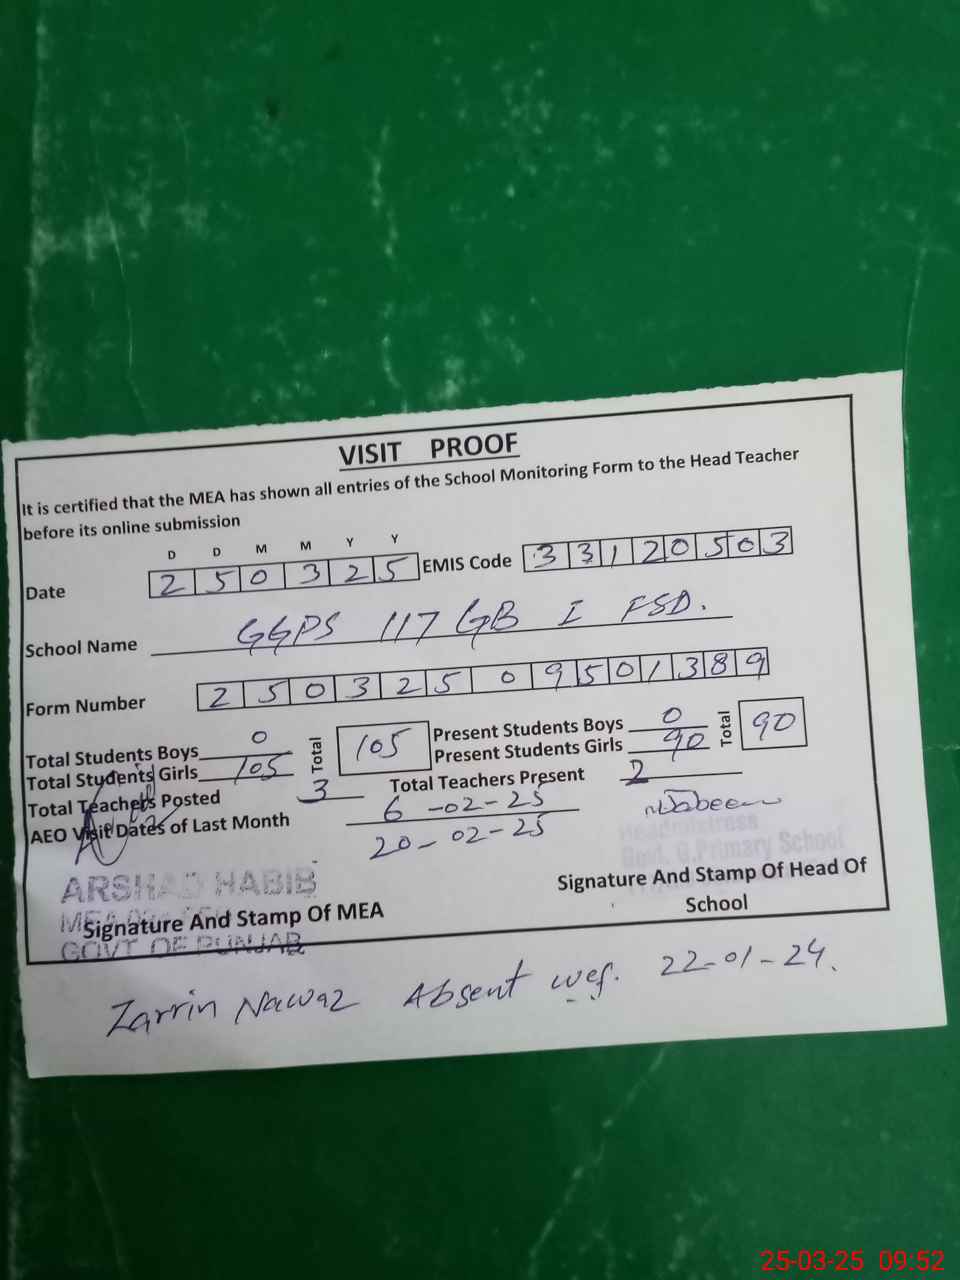 VISIT PROOF
It is certified that the MEA has shown all entries of the School Monitoring Form to the Head Teacher
before its online submission
D D M M Y Y
Date 2 5 0 3 2 5 EMIS Code 3 3 1 2 0 5 0 3
School Name GGPS 117 GB I FSD.
Form Number 2 5 0 3 2 5 0 9 5 0 1 3 8 9
Total Students Boys 0 Total 105 Present Students Boys 0 Total 90
Total Students Girls 105 Present Students Girls 90
Total Teachers Posted 3 Total Teachers Present 2
AEO Visit Dates of Last Month 6-02-25
20-02-25
Headmistress
Govt. G.Primary School
ARSHAD HABIB
MEA
GOVT OF PUNJAB
Signature And Stamp Of MEA
Signature And Stamp Of Head Of
School
Zarrin Nawaz Absent wef. 22-01-24.
25-03-25 09:52